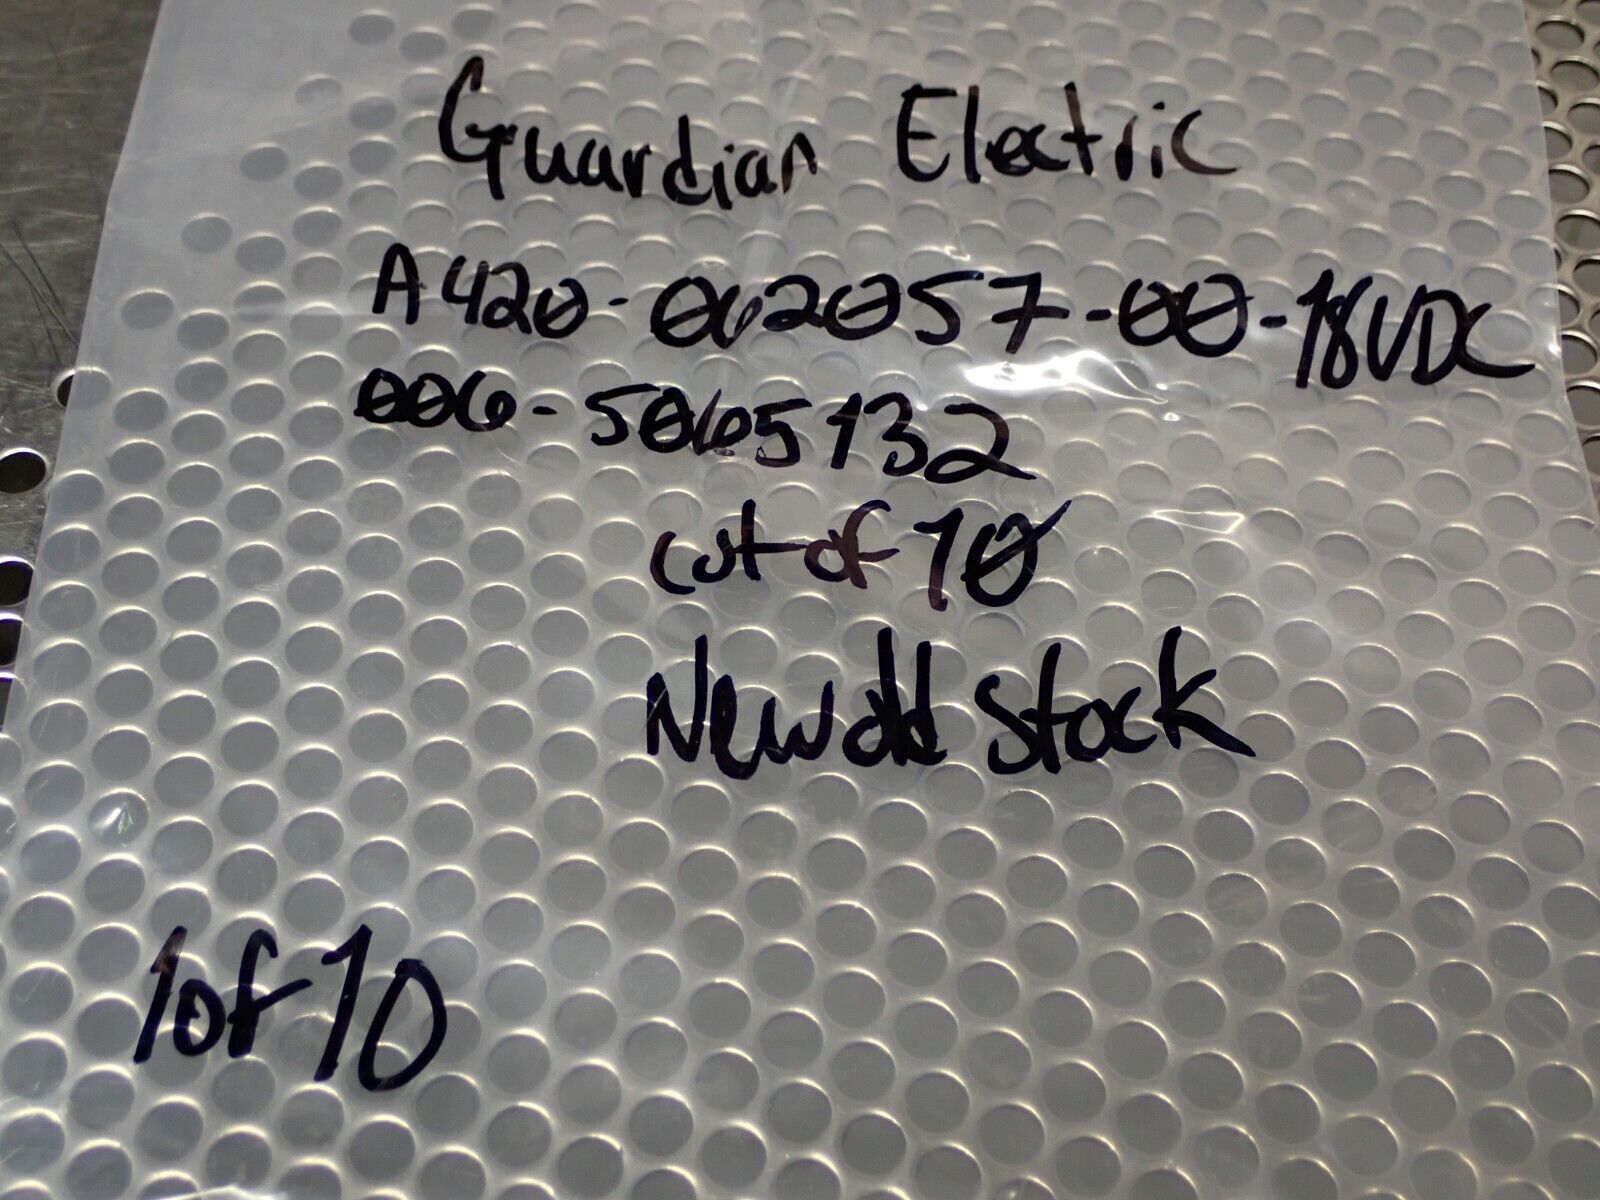 Guardian Electric
A420-062057-00-18VDC
006-5065132
Lot of 10
New old Stock
1 of 10